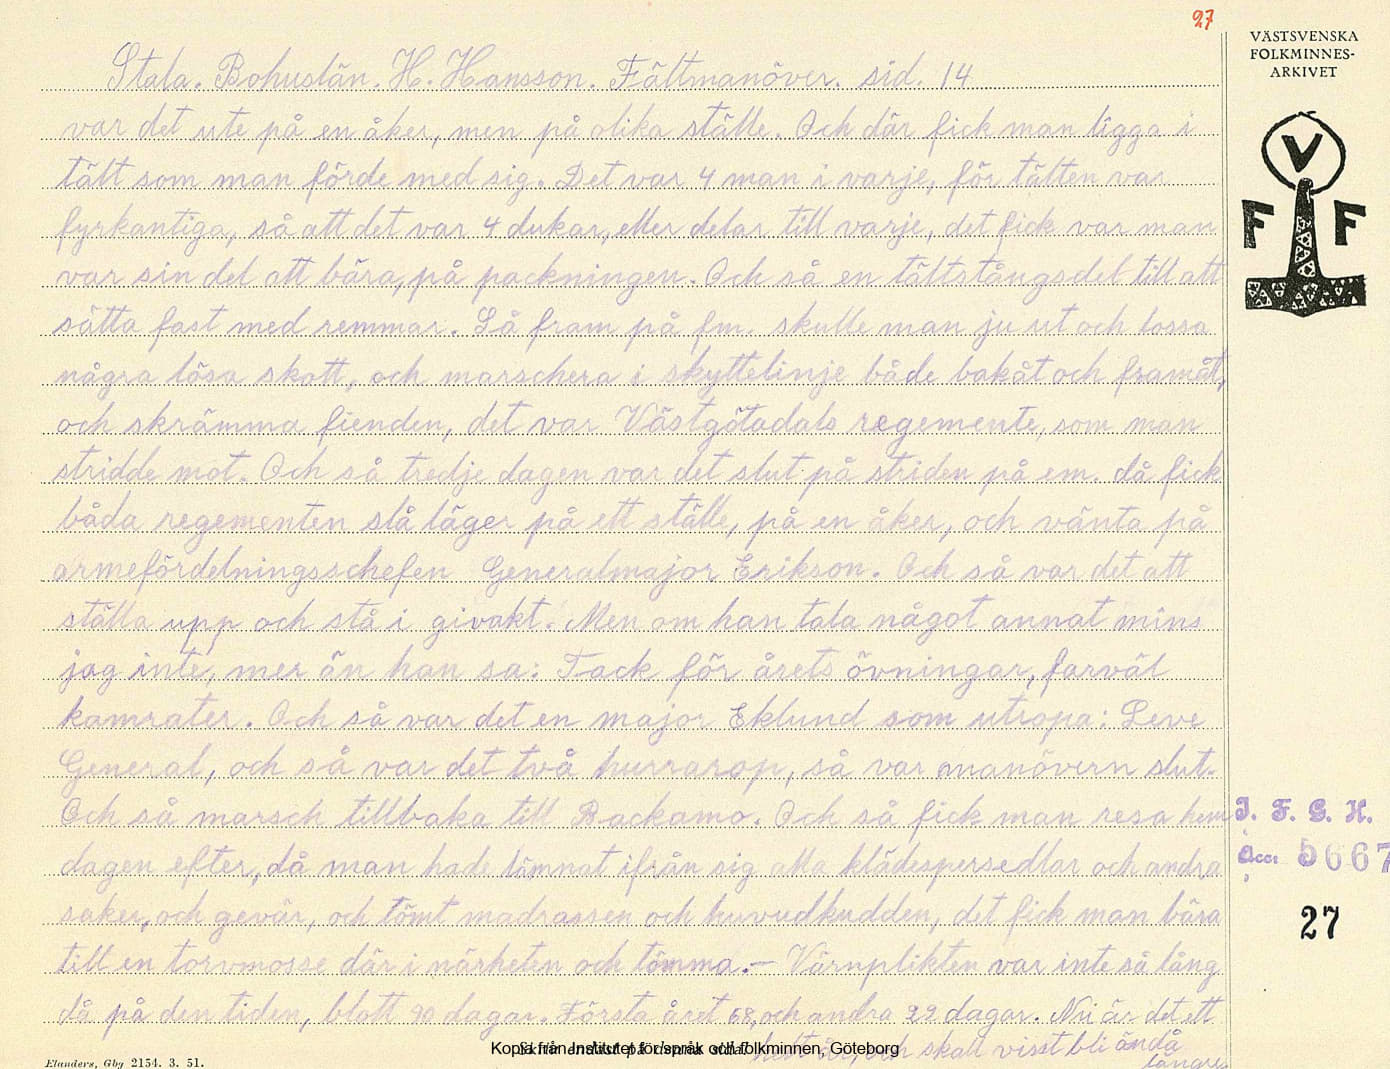 27
VÄSTSVENSKA
FOLKMINNES-
ARKIVET
V
F F
Stala. Bohuslän. H. Hansson. Fältmanöver. sid. 14
var det ute på en åker, men på olika ställe. Och där fick man ligga i
tält som man förde med sig. Det var 4 man i varje, för tälten var
fyrkantiga, så att det var 4 dukar, eller delar till varje, det fick var man
var sin del att bära, på packningen. Och så en tältstångsdel till att
sätta fast med remmar. Så fram på fm. skulle man ju ut och lossa
några lösa skott, och marschera i skyttelinje både bakåt och framåt,
och skrämma fienden, det var Västgötadals regemente, som man
stridde mot. Och så tredje dagen var det slut på striden på em. då fick
båda regementen slå läger på ett ställe, på en åker, och vänta på
armefördelningsschefen Generalmajor Erikson. Och så var det att
ställa upp och stå i givakt. Men om han tala något annat mins
jag inte, mer än han sa: Tack för årets övningar, farväl
kamrater. Och så var det en major Eklund som utropa: Leve
General, och så var det två hurrarop, så var manövern slut.
Och så marsch tillbaka till Backamo. Och så fick man resa hem
dagen efter, då man hade lämnat ifrån sig alla klädespersedlar och andra
saker, och gevär, och tömt madrassen och huvudkudden, det fick man bära
till en torvmosse där i närheten och tömma.— Värnplikten var inte så lång
då på den tiden, blott 90 dagar. Första året 68, och andra 22 dagar. Nu är det ett
och skall visst bli ändå
längre
I. F. G. H.
Acc. 5667
27
Elanders, Gbg 2154. 3. 51.
Skriv endast på denna sida!
Kopia från Institutet för språk och folkminnen, Göteborg